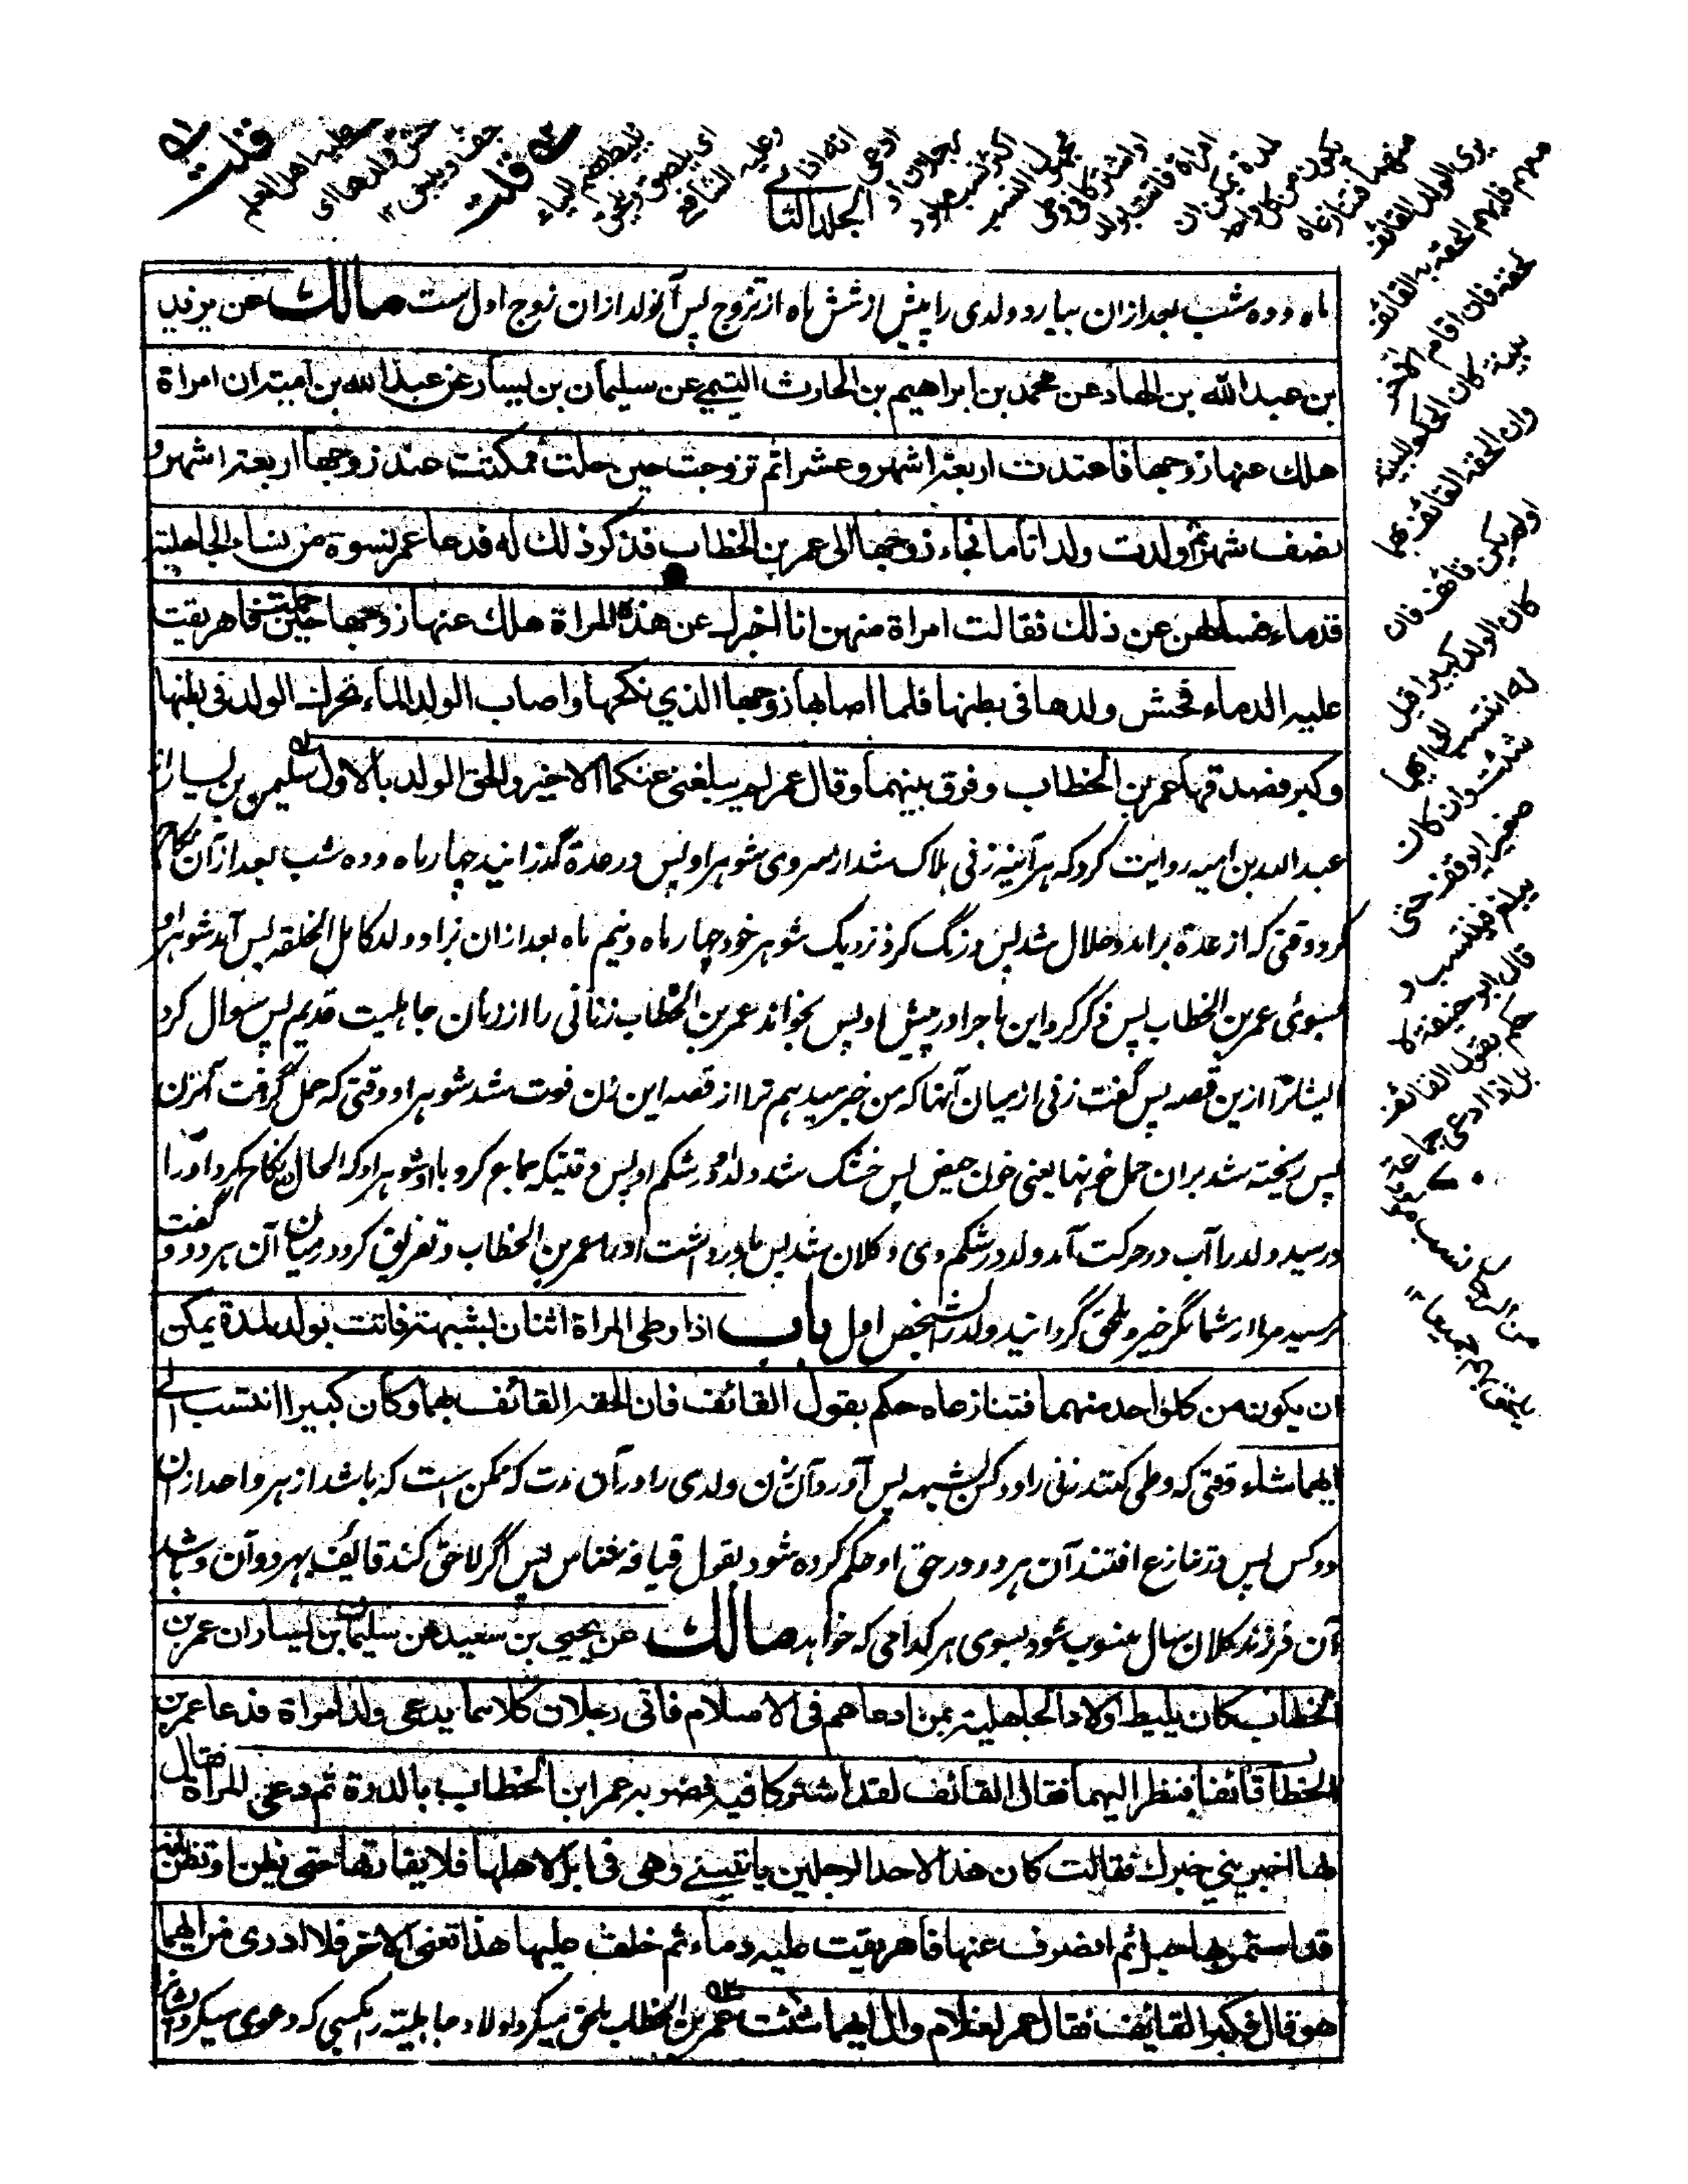 الجلد الثاني
ماه وده شب بعد ازان بیارد ولدی را پیش از شش ماه از تزوج پس آنولد ازان زوج اول ست مالك عن يزيد
بن عبد الله بن الهاد عن محمد بن ابراهيم بن الحارث التيمي عن سليمان بن يسار عن عبد الله بن امية ان امراة
هلك عنها زوجها فاعتدت اربعة اشهر وعشرا ثم تزوجت حين حلت فمكثت عند زوجها اربعة اشهر و
نصف شهر ثم ولدت ولدا تاما فجاء زوجها الى عمر بن الخطاب فذكر ذلك له فدعا عمر نسوة من نساء الجاهلية
قدماء فسالهن عن ذلك فقالت امراة منهن انا اخبرك عن هذه المراة هلك عنها زوجها حين حملت فاهريقت
عليه الدماء فحش ولدها فى بطنها فلما اصابها زوجها الذي نكحها واصاب الولد الماء تحرك الولد فى بطنها
وكبر فصدقها عمر بن الخطاب وفرق بينهما وقال عمر لم يبلغنى عنكما الا خير والحق الولد بالاول سليمن بن يسار از
عبد الله بن امیه روایت کرد که هرآئینه زنی هلاک شد از سروی شوهر او پس در عدة گذرانید چهار ماه وده شب بعد ازان نکاح
کرد وقتی که از عدة برآمد وحلال شد پس درنگ کرد نزدیک شوهر خود چهار ماه ونیم ماه بعد ازان زاد ولد کامل الخلقه پس آمد شوهر او
بسوئی عمر بن الخطاب پس ذکر کرد این ماجرا در پیش او پس بخواند عمر بن الخطاب زنانی را از زنان جاهلیت قدیم پس سوال کرد
ایشانرا ازین قصه پس گفت زنی از میان آنها که من خبر میدهم ترا از قصه این زن فوت شد شوهر او وقتی که حمل گرفت آنزن
پس ریخته شد بران حمل خونها یعنی خون حیض پس خشک شد ولد او در شکم او پس وقتیکه جماع کرد با او شوهر او که الحال نکاح کرد اورا
ورسید ولد را آب در حرکت آمد ولد در شکم وی وکلان شد پس باور داشت اورا عمر بن الخطاب وتفریق کرد در میان آن هر دو وگفت
نرسید مرا از شما مگر خیر وملحق گردانید ولد را بشخص اول باب اذا وطى المراة اثنان بشبهة فاتت بولد لمدة يمكن
ان يكون من كل واحد منهما فتنازعاه حكم بقول القائف فان الحقه القائف بهما وكان كبيرا انتسب الى
ايهما شاء وقتی که وطی کنند زنی را دو کس بشبهه پس آورد آن زن ولدی را در آن مدت که ممکن ست که باشد از هر واحد ازان
دو کس پس در تنازع افتند آن هر دو در حق او حکم کرده شود بقول قیافه شناس پس اگر لاحق کند قائف بهر دو آن وباشد
آن فرزند کلان سال منسوب شود بسوی هر کدامی که خواهد مالك عن يحيى بن سعيد عن سليمان بن يسار ان عمر بن
الخطاب كان يليط اولاد الجاهلية بمن ادعاهم فى الاسلام فاتى رجلان كلاهما يدعى ولد امراة فدعا عمر بن
الخطاب قائفا فنظر اليهما فقال القائف لقد اشتركا فيه فضربه عمر ابن الخطاب بالدرة ثم دعى المراة فقال
لها اخبريني خبرك فقالت كان هذا لاحد الرجلين ياتيني وهى فى ابل لاهلها فلا يفارقها حتى يظن او تظن انه
قد استمر بها حبل ثم انصرف عنها فاهريقت عليه دماء ثم خلف عليها هذا تعنى الاخر فلا ادرى من ايهما
هو قال فكبر القائف فقال عمر للغلام وال ايهما شئت عمر بن الخطاب ملحق میکرد اولاد جاهلیة را بکسی که دعوی میکرد ایشانرا
منهم فايهم الحقه به القائف
لحقه فان اقام الاخر
بينة كان الحكم للبينة
وان الحقه القائف بهما
اولم يكن قائف فان
كان الولد كبيرا قيل
له انتسب الى ايهما
شئت وان كان
صغيرا يوقف حتى
يبلغ فينتسب و
قال ابو حنيفة لا
حكم بقول القائف
بل اذا ادعى جماعة